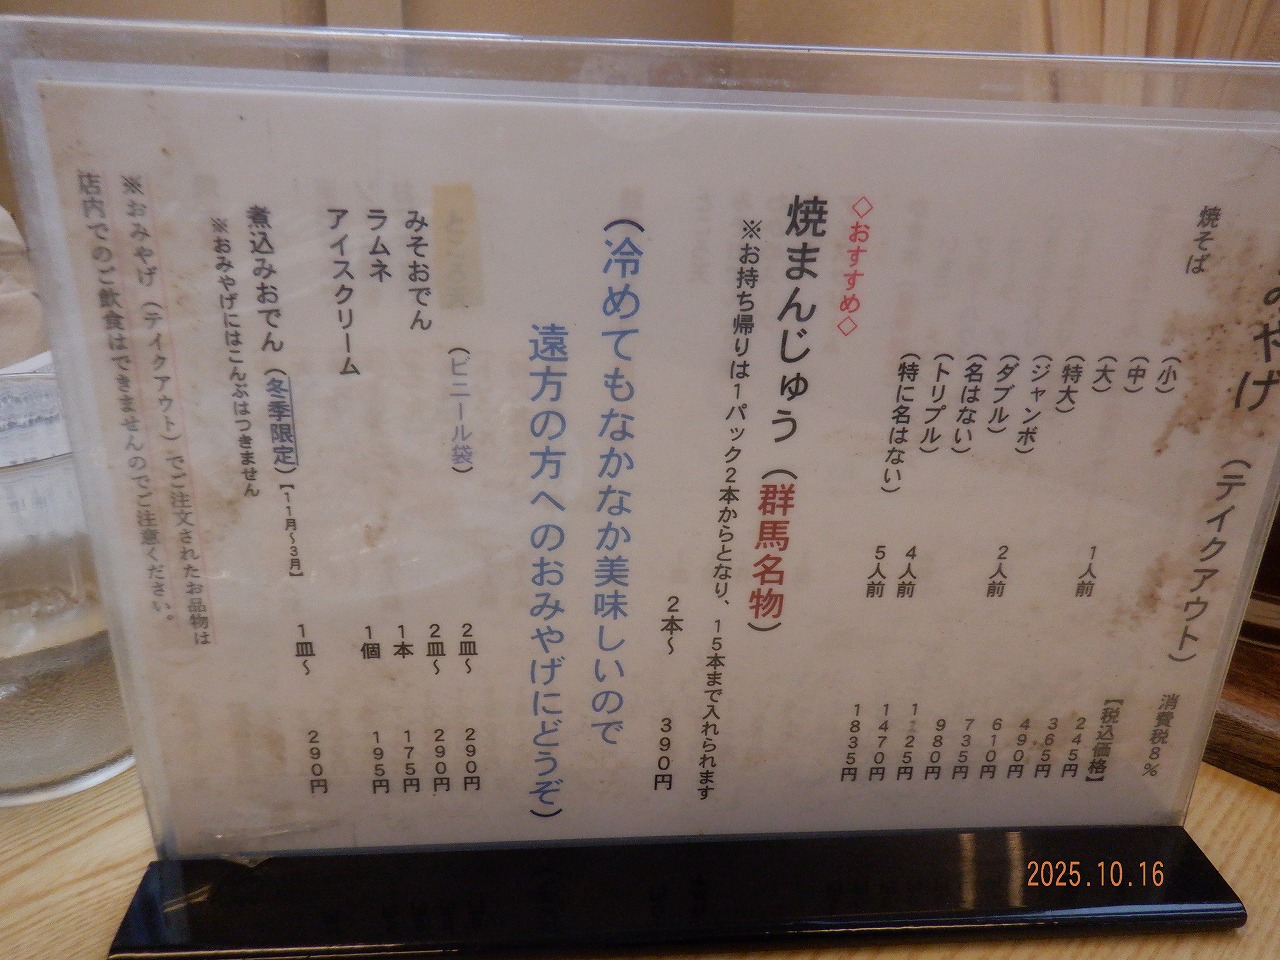 みやげ（テイクアウト） 消費税８％
【税込価格】
焼そば
（小） ２４５円
（中） ３６５円
（大） １人前 ４９０円
（特大） ６１０円
（ジャンボ） ７３５円
（ダブル） ２人前 ９８０円
（名はない）
（トリプル）
（特に名はない） ４人前
５人前
１４７０円
１８３５円
◇おすすめ◇
焼まんじゅう（群馬名物）
※お持ち帰りは１パック２本からとなり、１５本まで入れられます
２本～ ３９０円
（冷めてもなかなか美味しいので
遠方の方へのおみやげにどうぞ）
（ビニール袋） ２皿～ ２９０円
みそおでん ２皿～ ２９０円
ラムネ １本 １７５円
アイスクリーム １個 １９５円
煮込みおでん（冬季限定）【１１月～３月】 １皿～ ２９０円
※おみやげにはこんぶはつきません
※おみやげ（テイクアウト）でご注文されたお品物は
店内でのご飲食はできませんのでご注意ください。
2025.10.16